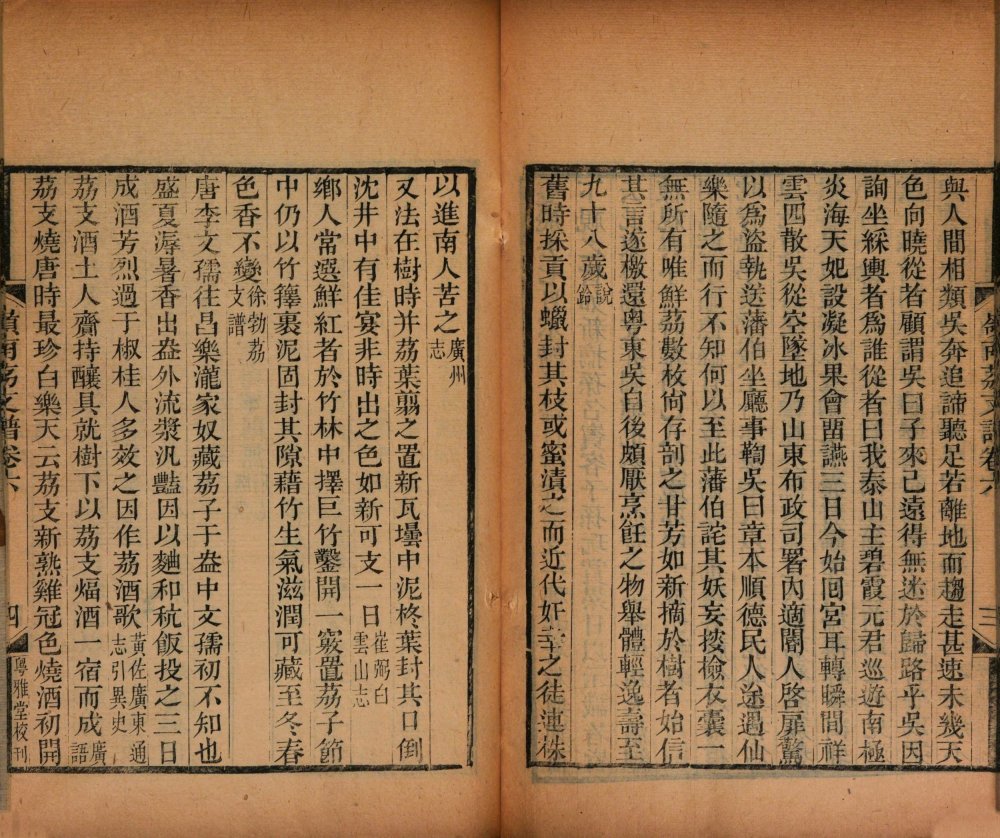 與人間相類吳奔追諦聽足若離地而趨走甚速未幾天
色向曉從者顧謂吳曰子來已遠得無迷於歸路乎吳因
詢坐綵輿者爲誰從者曰我泰山主碧霞元君巡遊南極
炎海天妃設凝冰果會畱讌三日今始囘宮耳轉瞬間祥
雲四散吳從空墜地乃山東布政司署內適閽人啓扉驚
以爲盜執送藩伯坐廳事鞫吳曰章本順德民人途遇仙
樂隨之而行不知何以至此藩伯詫其妖妄按檢衣囊一
無所有唯鮮荔數枚尙存剖之甘芳如新摘於樹者始信
其言遂檄還粵東吳自後頗厭烹飪之物舉體輕逸壽至
九十八歲說鈴
舊時採貢以蠟封其枝或蜜漬之而近代奸𡚶之徒連株
以進南人苦之廣州志
又法在樹時并荔葉翦之置新瓦壜中泥柊葉封其口倒
沈井中有佳宴非時出之色如新可支一日崔弼白雲山志
鄉人常選鮮紅者於竹林中擇巨竹鑿開一竅置荔子節
中仍以竹籜裹泥固封其隙藉竹生氣滋潤可藏至冬春
色香不變徐勃荔支譜
唐李文孺往呂樂瀧家奴藏荔子于盎中文孺初不知也
盛夏溽暑香出盎外流漿汎豔因以麯和秔飯投之三日
成酒芳烈過于椒桂人多效之因作荔酒歌黃佐廣東通志引異史
荔支酒土人齎持釀具就樹下以荔支煏酒一宿而成廣語
荔支燒唐時最珍白樂天云荔支新熟雞冠色燒酒初開
嶺南荔支譜卷六
四
粵雅堂校刊